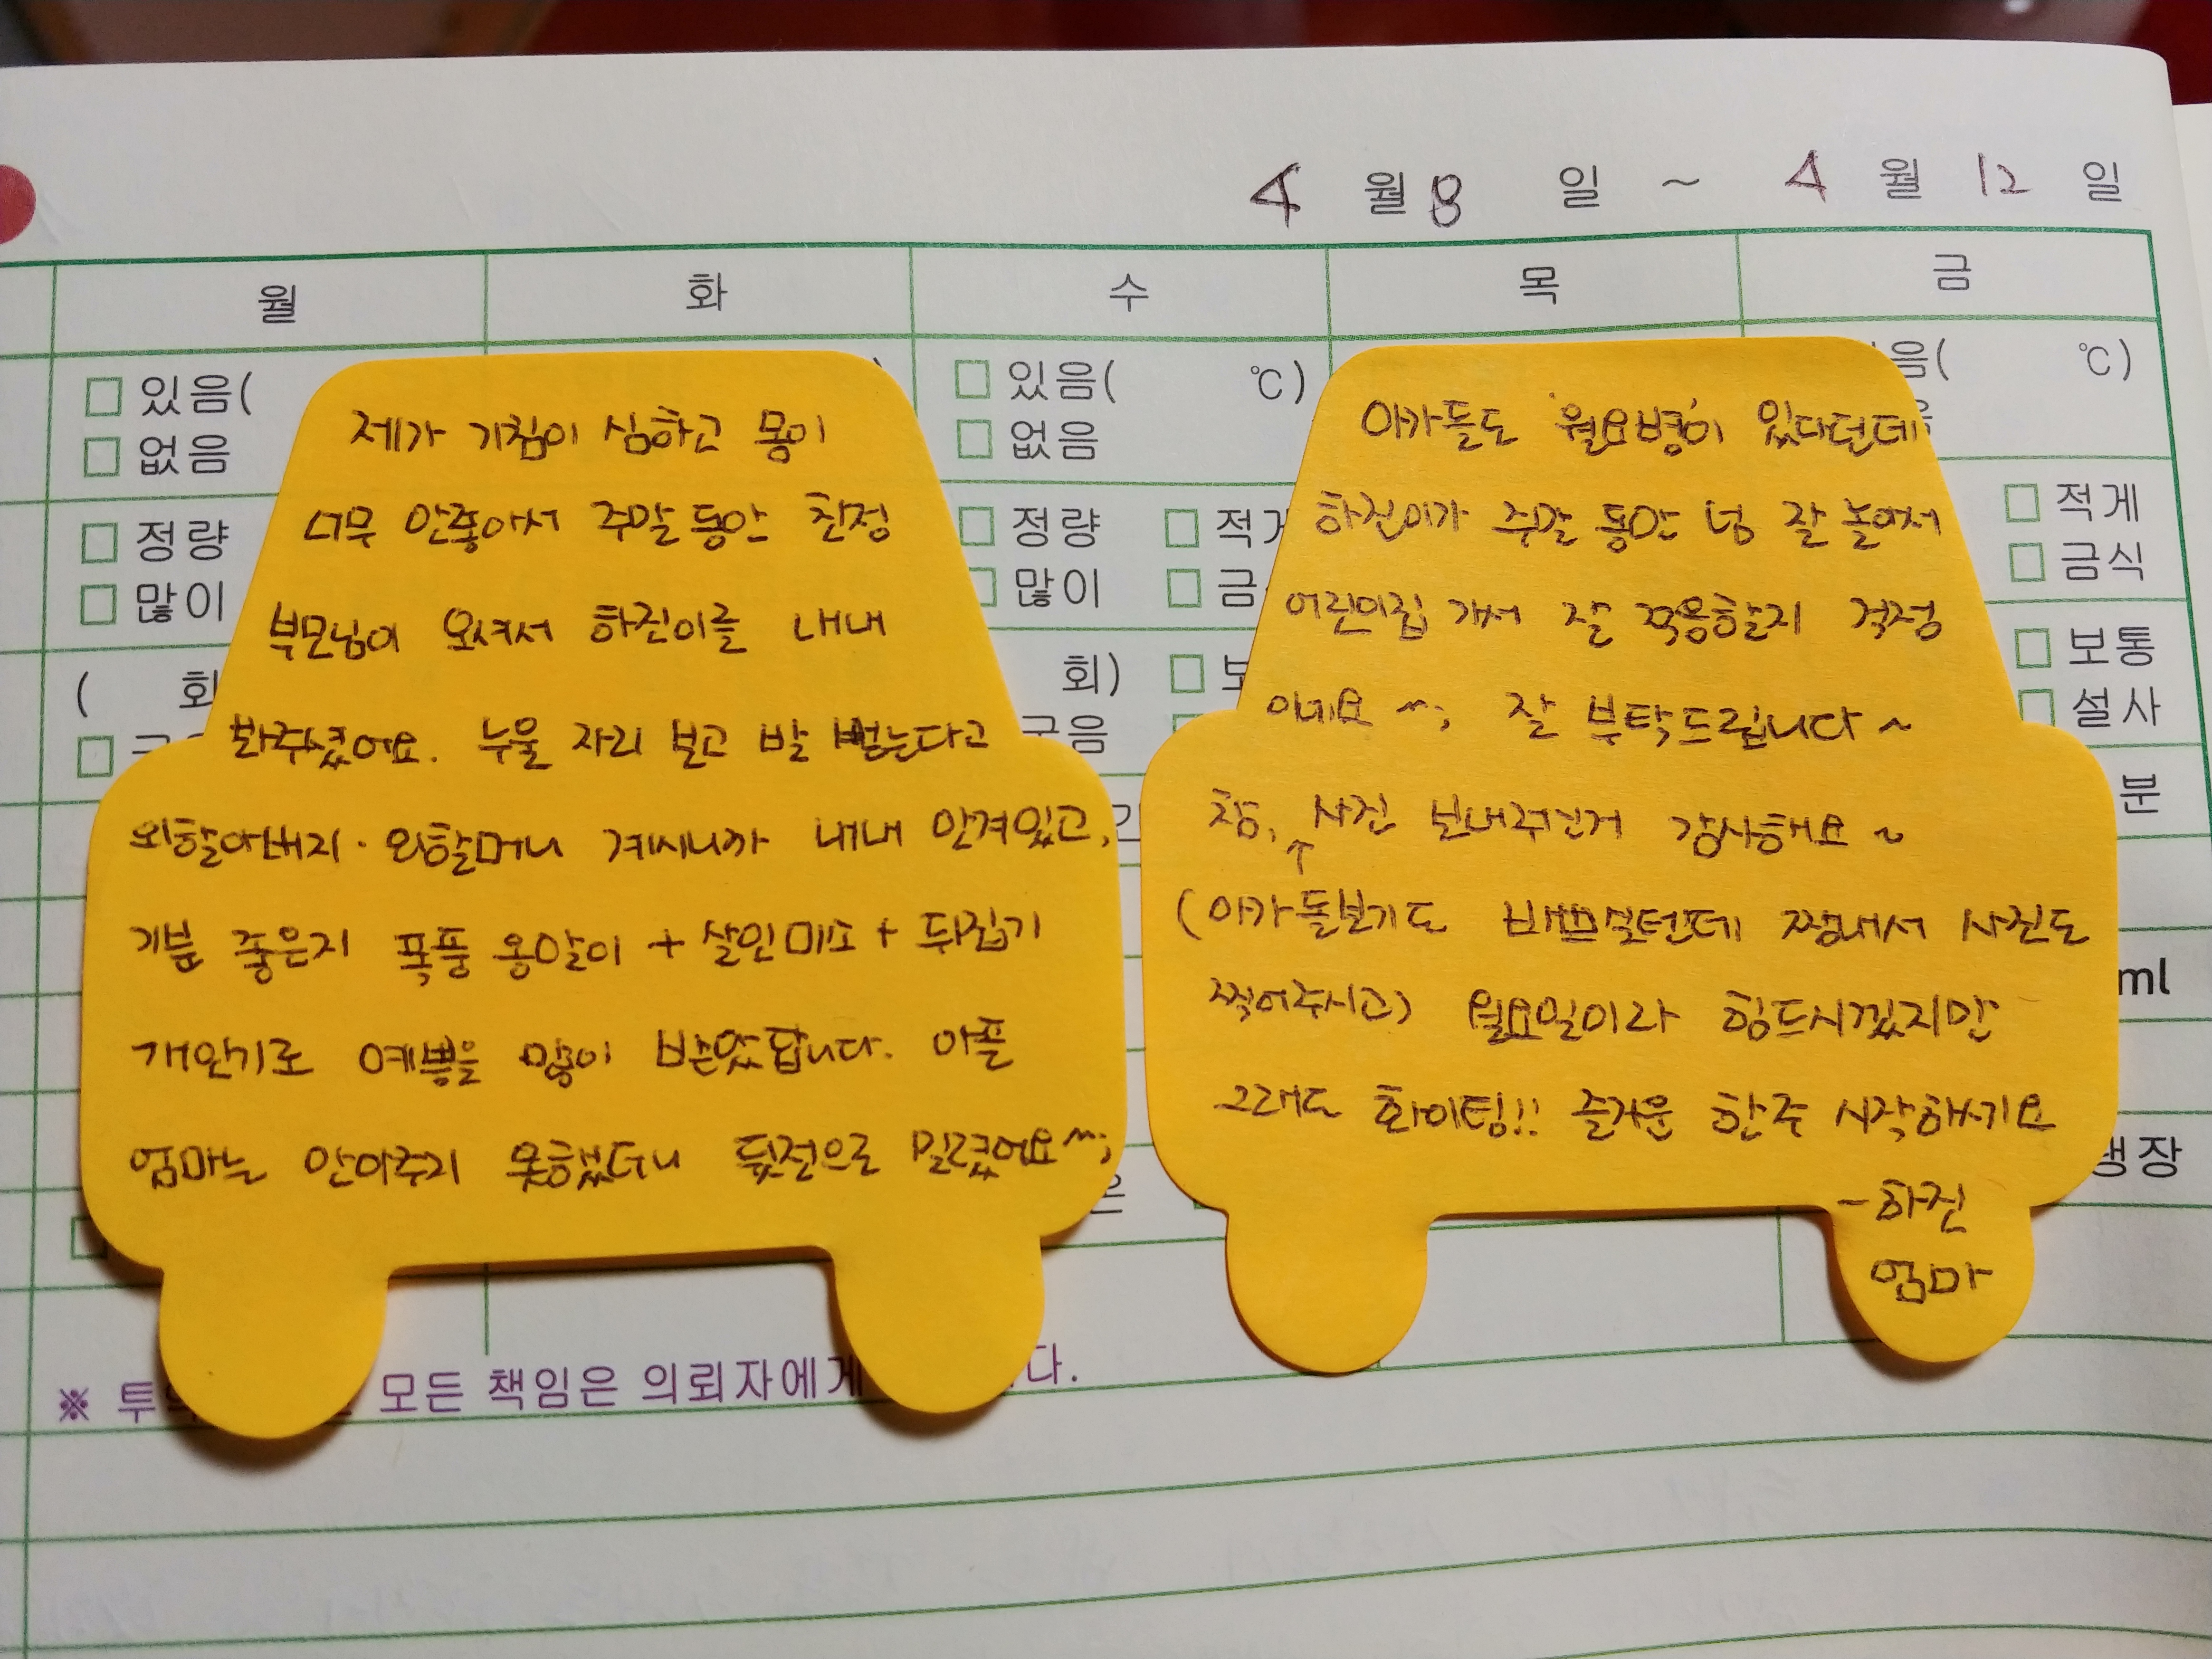 4 월 8 일 ~ 4 월 12 일
월 화 수 목 금
있음(
없음
정량
많이
( 회
있음( ℃)
없음
정량 적게
많이
회)
음( ℃)
적게
금식
보통
설사
분
ml
냉장
제가 기침이 심하고 몸이
너무 안좋아서 주말 동안 친정
부모님이 오셔서 하진이를 내내
봐주셨어요. 누울 자리 보고 발 뻗는다고
외할아버지·외할머니 계시니까 내내 안겨있고,
기분 좋은지 폭풍 옹알이 + 살인미소 + 뒤집기
개인기로 예쁨을 많이 받았답니다. 아픈
엄마는 안아주지 못했더니 뒷전으로 밀렸어요^^;
아가들도 '월요병'이 있다던데
하진이가 주말 동안 넘 잘 놀아서
어린이집 가서 잘 적응할지 걱정
이네요 ^^; 잘 부탁드립니다~
참, 사진 보내주신거 감사해요~
↑
(아가 돌보기도 바쁘실텐데 짬내서 사진도
찍어주시고) 월요일이라 힘드시겠지만
그래도 화이팅!! 즐거운 한주 시작하세요
-하진
엄마
※ 투 모든 책임은 의뢰자에게 다.